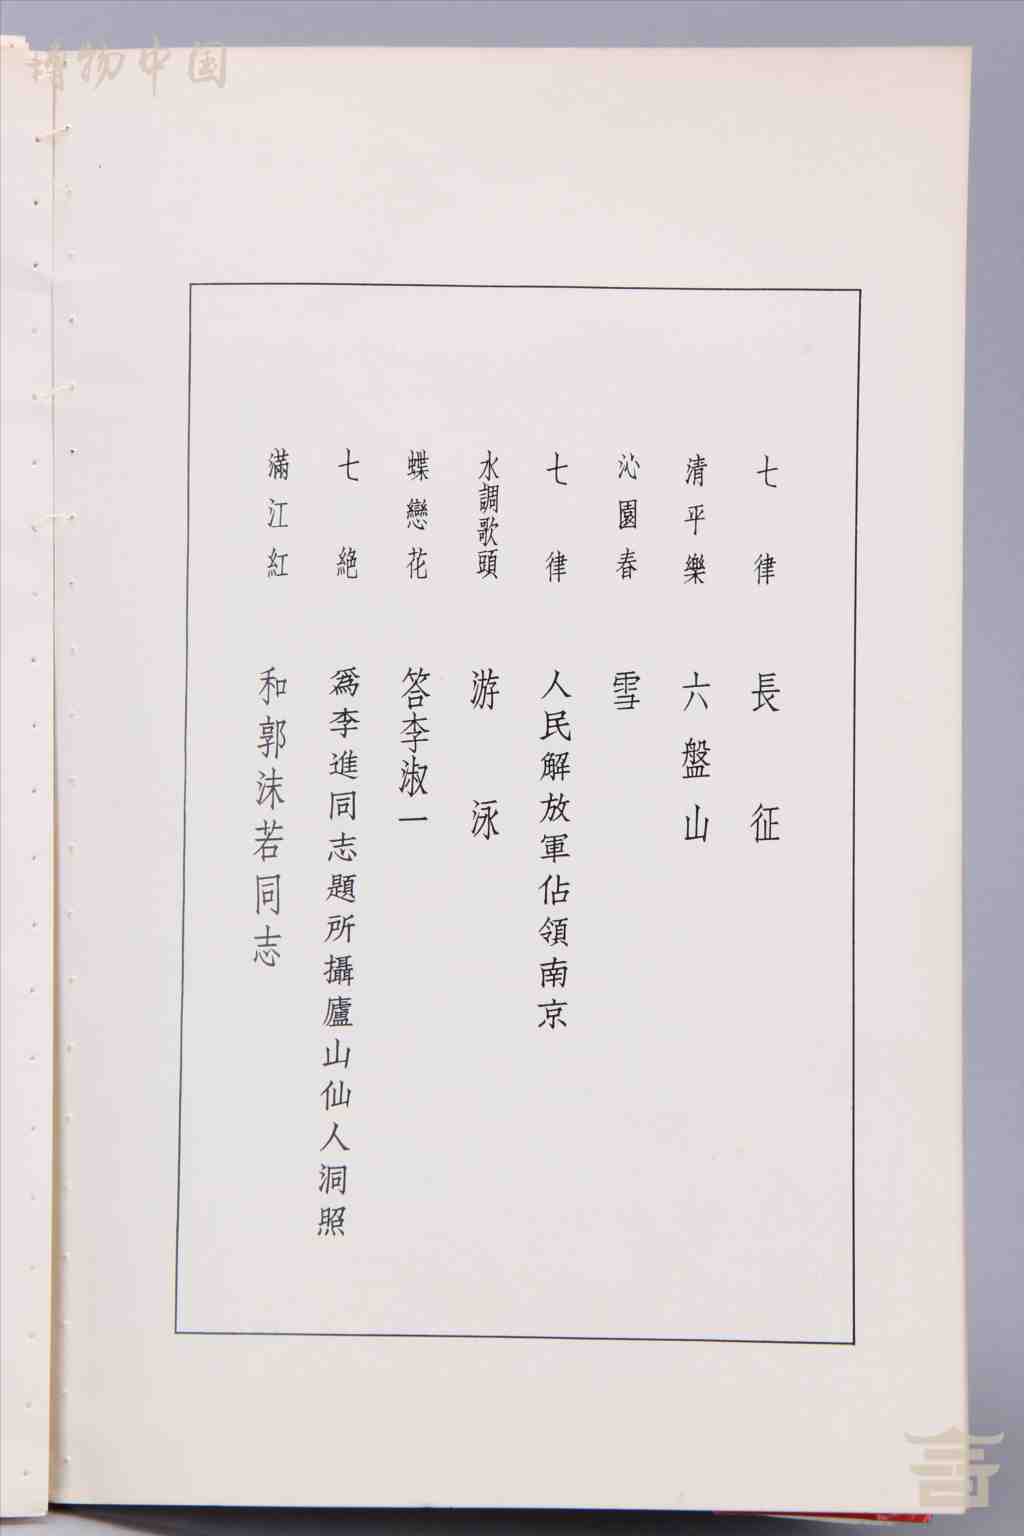 博物中国
七律 長征
清平樂 六盤山
沁園春 雪
七律 人民解放軍佔領南京
水調歌頭 游泳
蝶戀花 答李淑一
七絕 爲李進同志題所攝廬山仙人洞照
滿江紅 和郭沫若同志